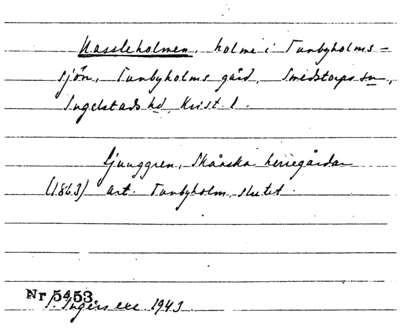 Hassleholmen, holme i Tunbyholms-
sjön, Tunbyholms gård, Smedstorps sn,
Ingelstads hd, Krist. l.
Ljunggren, Skånska herregårdar
(1863) art. Tunbyholm, slutet.
Nr 5453.
Ingers exc 1943